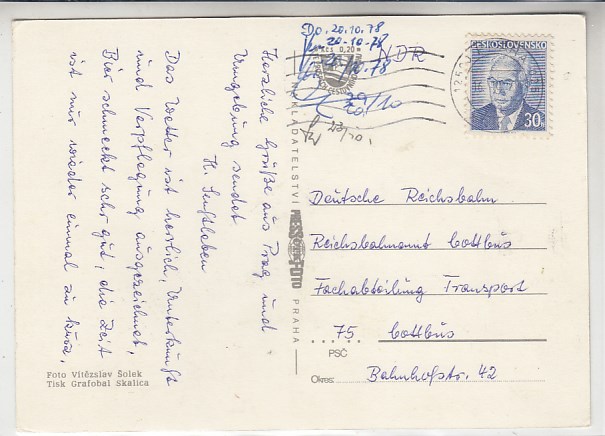 Herzliche Grüße aus Prag und
Umgebung sendet
H. Senftleben
Das Wetter ist herrlich, Unterkunft
und Verpflegung ausgezeichnet,
Bier schmeckt sehr gut, die Zeit
ist nur wieder einmal zu kurz.
Foto Vítězslav Šolek
Tisk Grafobal Skalica
NAKLADATELSTVÍ
PRESSFOTO
PRAHA
Kčs 0,20
Do. 20.10.78
20-10-78
20/10.78
20/10
23/10.
NDR
ČESKOSLOVENSKO
30h
Deutsche Reichsbahn
Reichsbahnamt Cottbus
Fachabteilung Transport
75 Cottbus
PSČ
Okres:
Bahnhofstr. 42